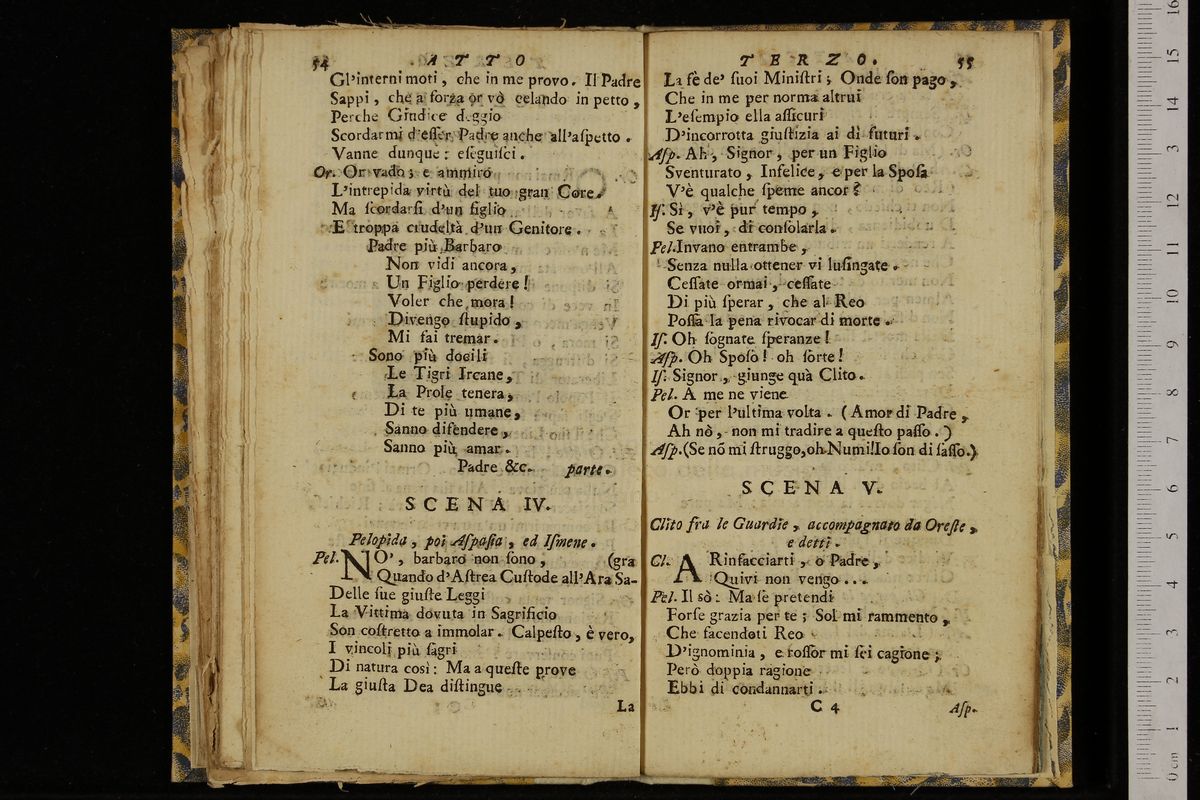 54 ATTO
Gl'interni moti, che in me provo. Il Padre
Sappi, che a forza or vò celando in petto,
Perche Giudice deggio
Scordarmi d'eſſer Padre anche all'aſpetto.
Vanne dunque: eſeguiſci.
Or. Or vado; e ammiro
L'intrepida virtù del tuo gran Core.
Ma ſcordarſi d'un figlio
E' troppa crudeltà d'un Genitore.
Padre più Barbaro
Non vidi ancora,
Un Figlio perdere!
Voler che mora!
Divengo ſtupido,
Mi fai tremar.
Sono più docili
Le Tigri Ircane,
La Prole tenera,
Di te più umane,
Sanno difendere,
Sanno più amar.
Padre &c. parte.
SCENA IV.
Pelopida, poi Aſpaſia, ed Iſmene.
Pel. NO', barbaro non ſono, (gra
Quando d'Aſtrea Cuſtode all'Ara Sa-
Delle ſue giuſte Leggi
La Vittima dovuta in Sagrificio
Son coſtretto a immolar. Calpeſto, è vero,
I vincoli più ſagri
Di natura così: Ma a queſte prove
La giuſta Dea diſtingue
La
TERZO. 55
La fè de' ſuoi Miniſtri; Onde ſon pago,
Che in me per norma altrui
L'eſempio ella aſſicuri
D'incorrotta giuſtizia ai dì futuri.
Aſp. Ah, Signor, per un Figlio
Sventurato, Infelice, e per la Spoſa
V'è qualche ſpeme ancor?
Iſ. Sì, v'è pur tempo,
Se vuoi, di conſolarla.
Pel. Invano entrambe,
Senza nulla ottener vi luſingate.
Ceſſate ormai, ceſſate
Di più ſperar, che al Reo
Poſſa la pena rivocar di morte.
Iſ. Oh ſognate ſperanze!
Aſp. Oh Spoſo! oh ſorte!
Iſ. Signor, giunge quà Clito.
Pel. A me ne viene
Or per l'ultima volta. (Amor di Padre,
Ah nò, non mi tradire a queſto paſſo.)
Aſp. (Se nõ mi ſtruggo, oh Numi! Io ſon di ſaſſo.)
SCENA V.
Clito fra le Guardie, accompagnato da Oreſte,
e detti.
Cl. A Rinfacciarti, o Padre,
Quivi non vengo...
Pel. Il sò: Ma ſe pretendi
Forſe grazia per te; Sol mi rammento,
Che facendoti Reo
D'ignominia, e roſſor mi ſei cagione;
Però doppia ragione
Ebbi di condannarti.
C 4 Aſp.
0 cm 1 2 3 4 5 6 7 8 9 10 11 12 13 14 15 16